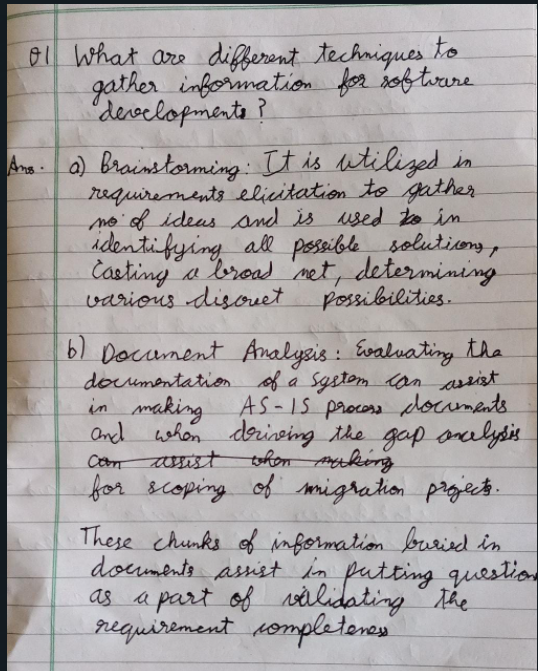 Q1 What are different techniques to
gather information for software
developments?
Ans. a) Brainstorming: It is utilized in
requirements elicitation to gather
no of ideas and is used to in
identifying all possible solutions,
casting a broad net, determining
various discret possibilities.
b) Document Analysis: Evaluating the
documentation of a System can assist
in making AS-IS process documents
and when driveing the gap analysis
can assist when making
for scoping of migration projects.
These chunks of information buried in
documents assist in putting question
as a part of validating the
requirement completeness